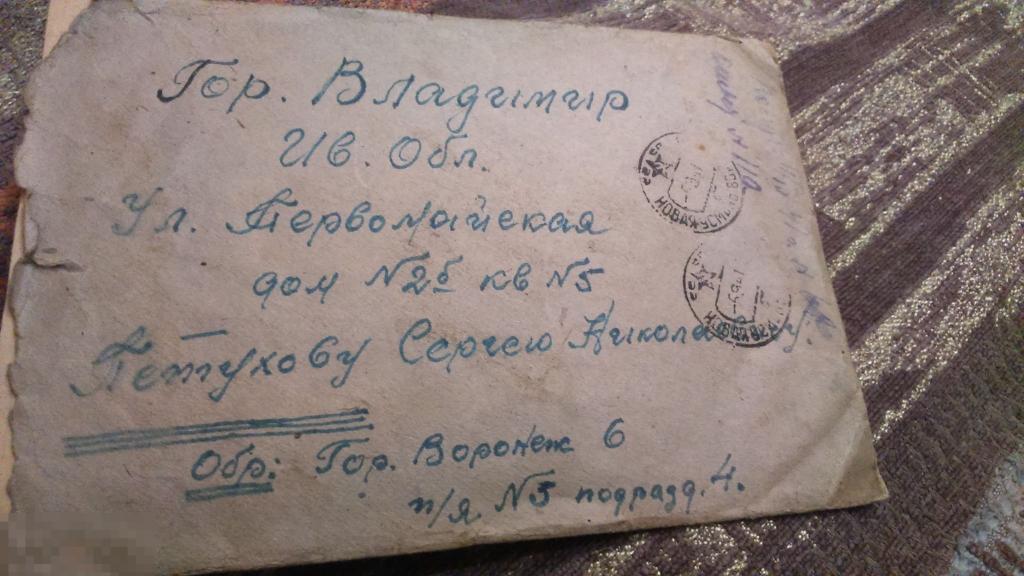 Гор. Владимир
Ив. Обл.
Ул. Первомайская
дом №2б кв №5
Петухову Сергею Николаевичу.
Обр: Гор. Воронеж 6
п/я №5 подразд. 4.